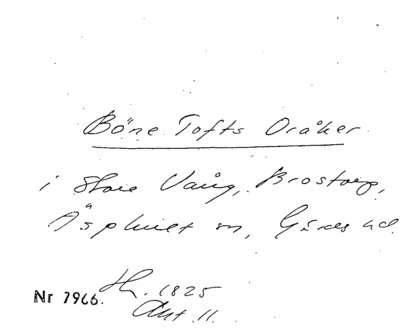 Böne Tofts Oråker
i Store Vång, Brostorp,
Äsphult sn, Gärds hd.
Nr 7966. H. 1825
Akt 11.